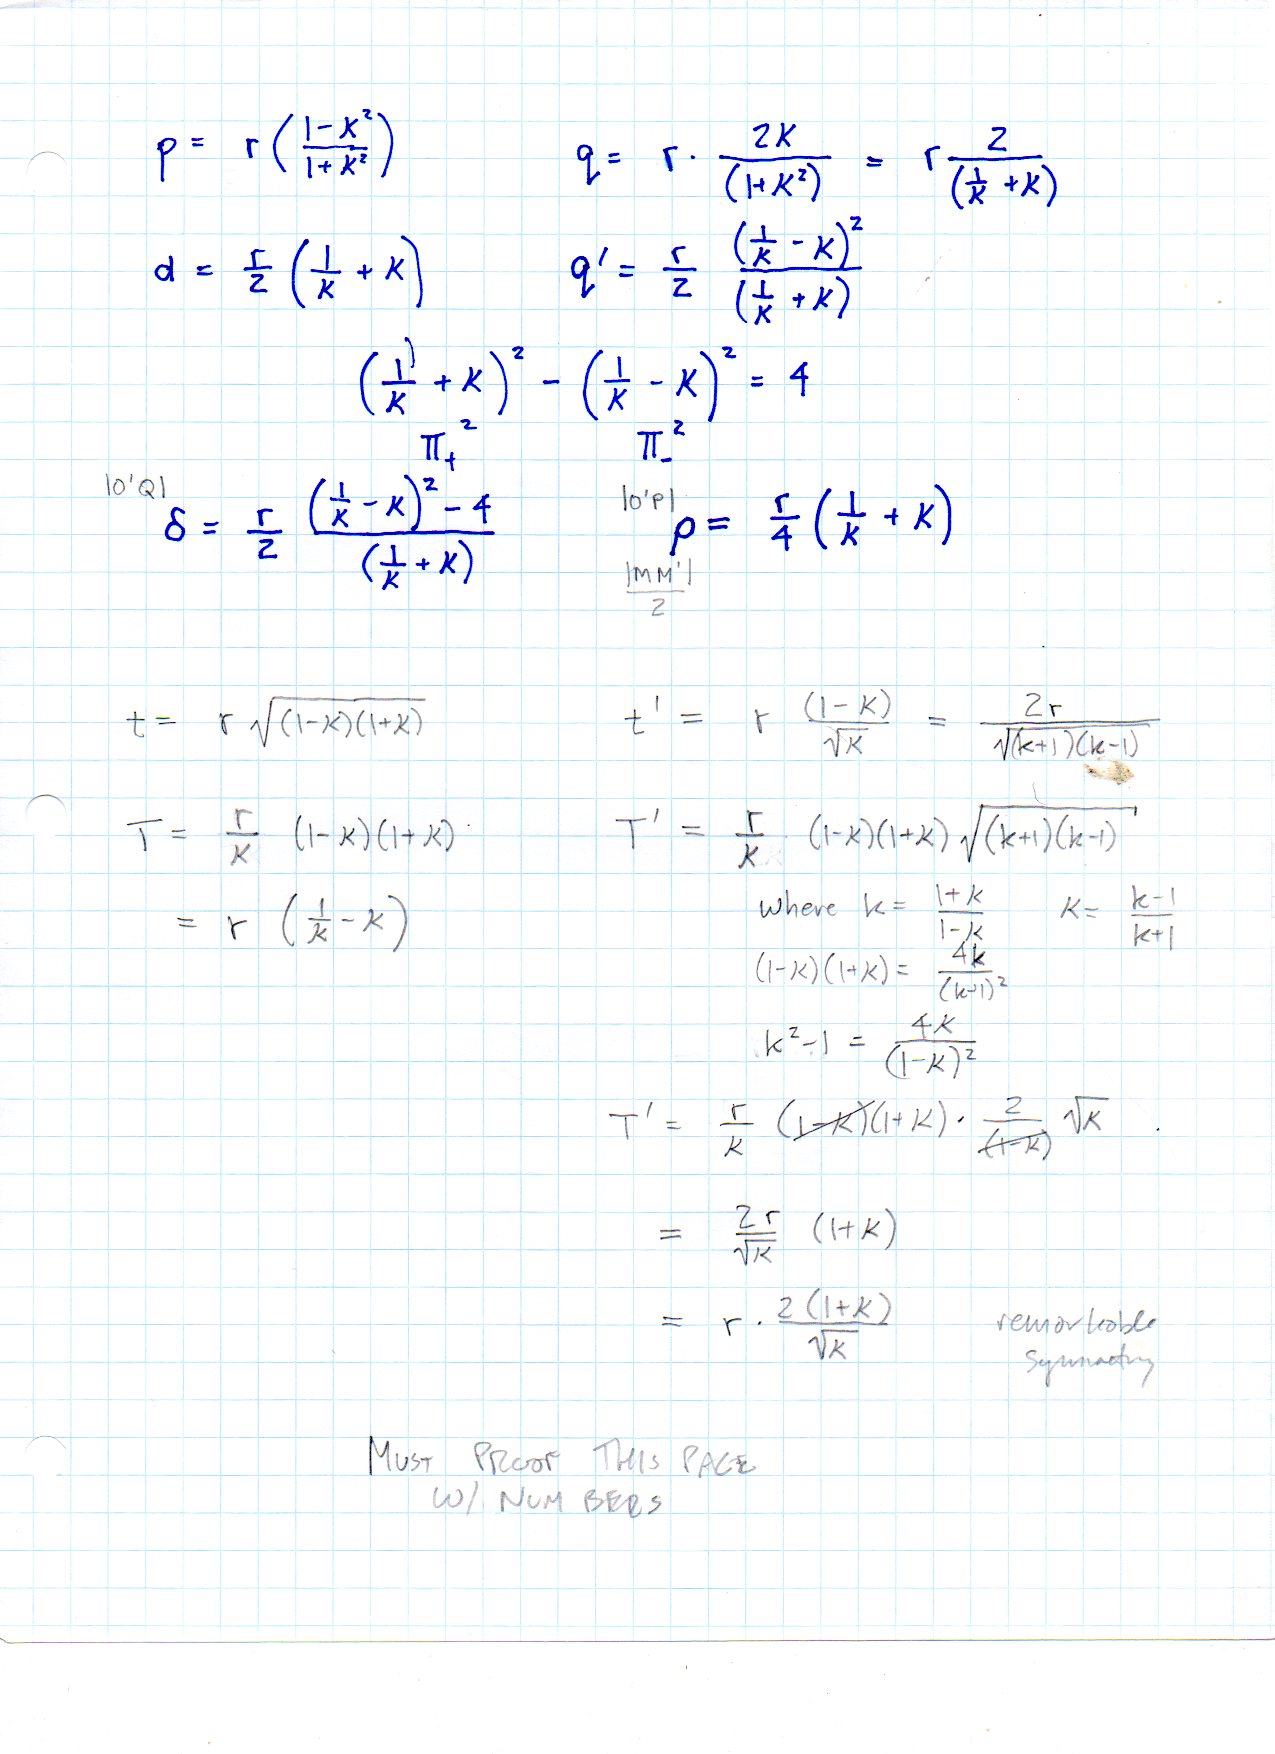 p = r ( (1-K²)/(1+K²) )    q = r · 2K/(1+K²) = r 2/(1/K + K)
d = r/2 (1/K + K)    q' = r/2 (1/K - K)²/(1/K + K)
(1/K + K)² - (1/K - K)² = 4
π₊²    π₋²
|O'Q|    |O'P|
δ = r/2 ((1/K - K)² - 4)/(1/K + K)    ρ = r/4 (1/K + K)
|MM'|/2
t = r √((1-K)(1+K))    t' = r (1-K)/√K = 2r/√((k+1)(k-1))
T = r/K (1-K)(1+K)    T' = r/K (1-K)(1+K) √((k+1)(k-1))
= r (1/K - K)    where k = (1+K)/(1-K)    K = (k-1)/(k+1)
(1-K)(1+K) = 4k/(k+1)²
k²-1 = 4K/(1-K)²
T' = r/K (1-K)(1+K) · 2/(1-K) √K
= 2r/√K (1+K)
= r · 2(1+K)/√K    remarkable
symmetry
MUST PROOF THIS PAGE
W/ NUMBERS